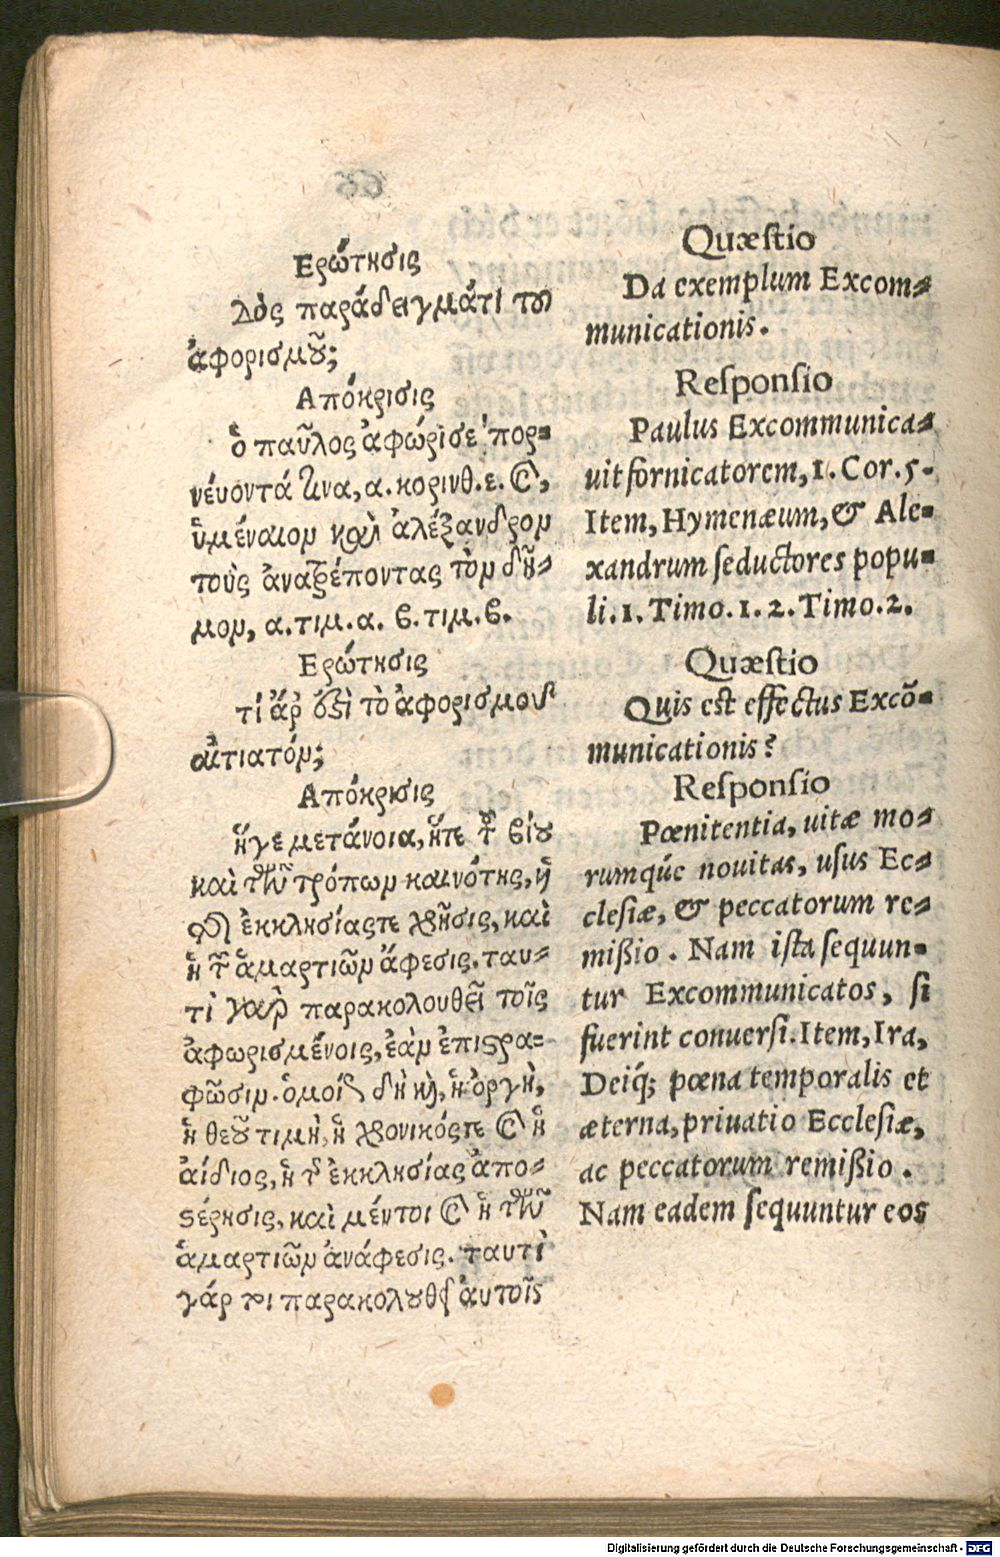 Ερώτησις
Δὸς παράδειγμάτι του
ἀφορισμοῦ;
Απόκρισις
ὁ παῦλος ἀφώρισε πορ-
νέυοντά τινα, α. κορινθ. ε. καὶ,
ὑμέναιον καὶ ἀλέξανδρον
τοὺς ἀνατρέποντας τὸν δῆ-
μον, α. τιμ. α. β. τιμ. β.
Ερώτησις
τί ἄρ ἐστὶ τὸ ἀφορισμοῦ
ἀιτιατόν;
Απόκρισις
ἥγε μετάνοια, ἥτε τοῦ βίου
καὶ τῶν τρόπων καινότης, ἡ
τῆς ἐκκλησίαςτε χρῆσις, καὶ
ἡ τῶν ἁμαρτιῶν ἄφεσις. ταυ-
τὶ γὰρ παρακολουθεῖ τοῖς
ἀφωρισμένοις, ἐὰν ἐπιστρα-
φῶσιν. ὁμοίως δὴ καὶ, ἡ ὀργὴ,
ἡ θεοῦ τιμὴ, ἡ χρονικόςτε καὶ ἡ
ἀίδιος, ἡ τῆς ἐκκλησίας ἀπο-
στέρησις, καὶ μέντοι καὶ ἡ τῶν
ἁμαρτιῶν ἀνάφεσις. ταυτὶ
γάρ τοι παρακολουθεῖ ἀυτοῖς
Quæstio
Da exemplum Excom-
municationis.
Responsio
Paulus Excommunica-
uit fornicatorem, 1. Cor. 5.
Item, Hymenæum, & Ale-
xandrum seductores popu-
li. 1. Timo. 1. 2. Timo. 2.
Quæstio
Quis est effectus Excõ-
municationis?
Responsio
Pœnitentia, uitæ mo-
rumq́ue nouitas, usus Ec-
clesiæ, & peccatorum re-
mißio. Nam ista sequun-
tur Excommunicatos, si
fuerint conuersi. Item, Ira,
Deiq́; pœna temporalis et
æterna, priuatio Ecclesiæ,
ac peccatorum remißio.
Nam eadem sequuntur eos
Digitalisierung gefördert durch die Deutsche Forschungsgemeinschaft - DFG